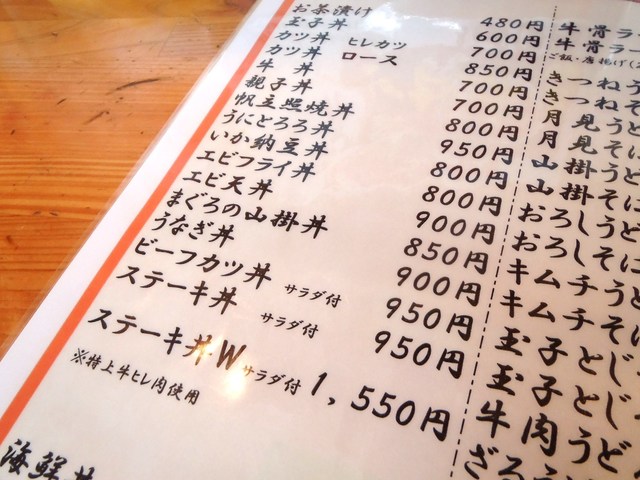 お茶漬け 480円
玉子丼 600円
カツ丼 ヒレカツ 700円
カツ丼 ロース 850円
牛丼 700円
親子丼 700円
帆立照焼丼 800円
うにとろろ丼 950円
いか納豆丼 800円
エビフライ丼 800円
エビ天丼 900円
まぐろの山掛丼 850円
うなぎ丼 900円
ビーフカツ丼 サラダ付 950円
ステーキ丼 サラダ付 950円
ステーキ丼W サラダ付 1,550円
※特上牛ヒレ肉使用
海鮮丼
牛骨ラ
牛骨ラ
ご飯・唐揚げ
きつねう
きつねそ
月見うど
月見そ
山掛うど
山掛そ
おろしう
おろしそ
キムチう
キムチそ
玉子とじ
玉子とじ
牛肉うど